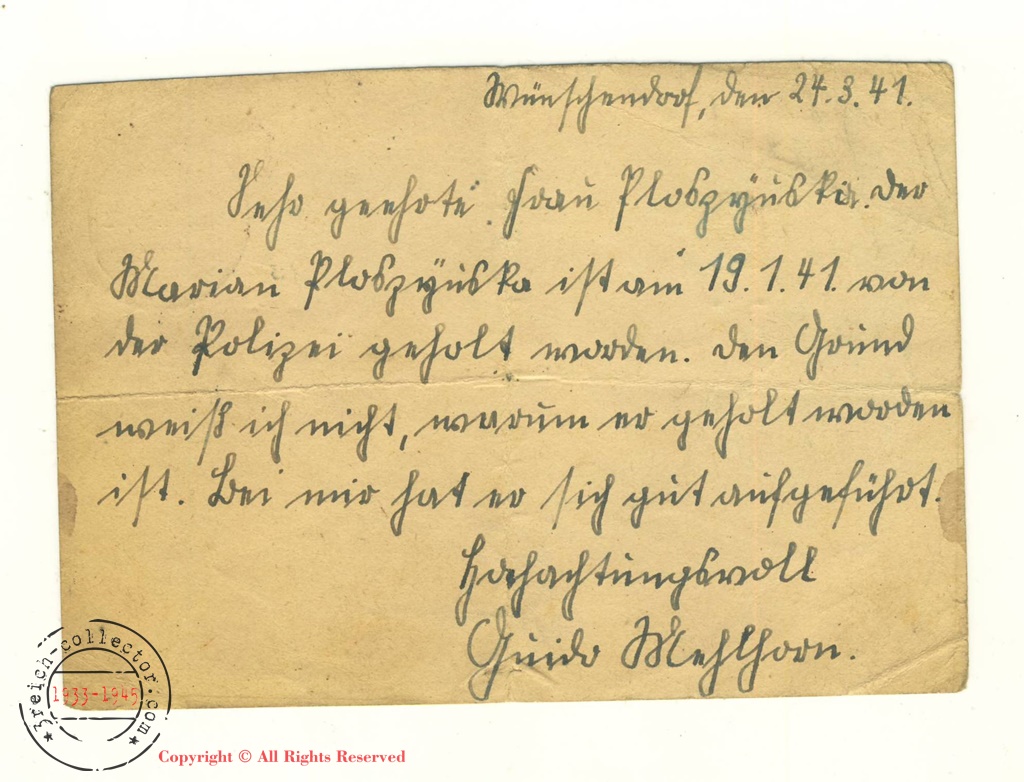 Wünschendorf, den 24.3.41.
Sehr geehrte Frau Ploszyńska. Der
Marian Ploszyńska ist am 19.1.41. von
der Polizei geholt worden. Den Grund
weiß ich nicht, warum er geholt worden
ist. Bei mir hat er sich gut aufgeführt.
Hochachtungsvoll
Guido Mehlhorn.
3reich-collector.com
1933-1945
Copyright © All Rights Reserved